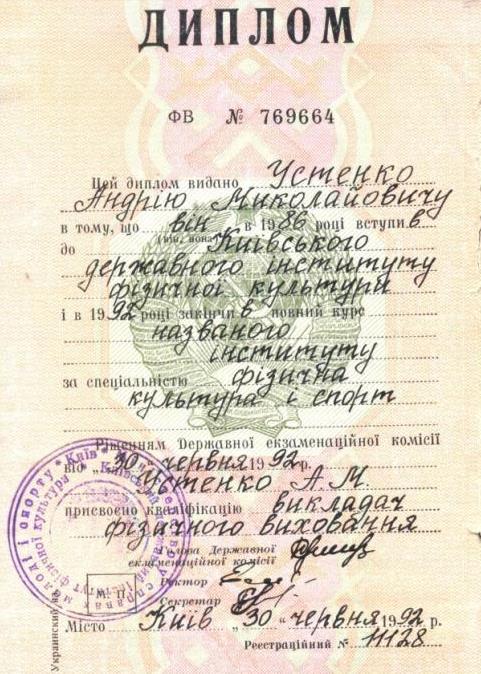 ДИПЛОМ
ФВ № 769664
Цей диплом видано Устенко
Андрію Миколайовичу
в тому, що він в 1986 році вступив
(він, вона)
до Київського
державного інституту
фізичної культури
і в 1992 році закінчив повний курс
названого
інституту
за спеціальністю фізична
культура і спорт
Рішенням Державної екзаменаційної комісії
від „30 червня 1992 р.
Устенко А.М.
присвоєно кваліфікацію викладач
фізичного виховання
Голова Державної
екзаменаційної комісії
Ректор
Секретар
М. П.
Місто Київ „30 “ червня 1992 р.
Реєстраційний № 11128